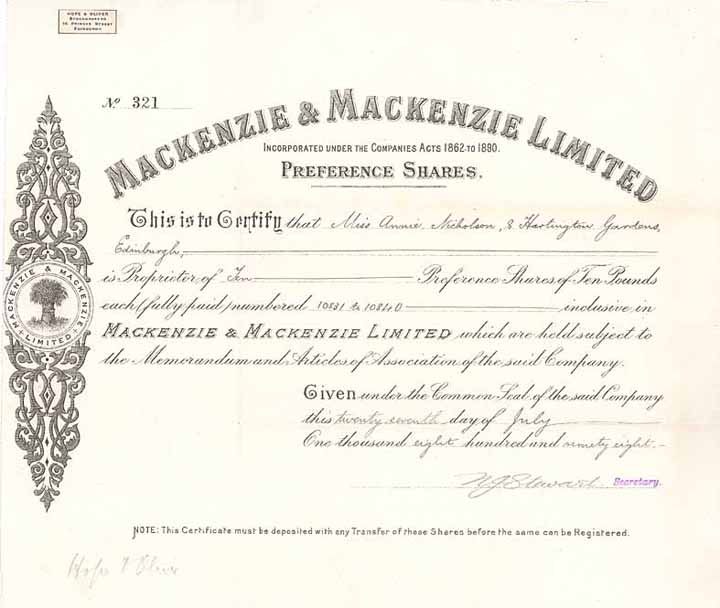 HOPE & OLIVER
STOCKBROKERS
16 PRINCES STREET
EDINBURGH
No 321
MACKENZIE & MACKENZIE LIMITED
INCORPORATED UNDER THE COMPANIES ACTS 1862 TO 1880.
PREFERENCE SHARES.
This is to Certify that Miss Annie Nicholson, 8 Hartington Gardens,
Edinburgh,
is Proprietor of Ten Preference Shares of Ten Pounds
each (fully paid) numbered 10831 to 10840 inclusive in
MACKENZIE & MACKENZIE LIMITED which are held subject to
the Memorandum and Articles of Association of the said Company.
MACKENZIE & MACKENZIE
LIMITED
Given under the Common Seal of the said Company
this twenty seventh day of July
One thousand eight hundred and ninety eight.
Secretary.
NOTE: This Certificate must be deposited with any Transfer of these Shares before the same can be Registered.
Hope & Oliver